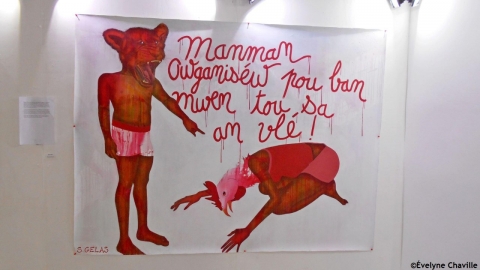 Manman
Owganiséw pou ban
mwen tou sa
an vlé !
S. GÉLAS
©Évelyne Chaville